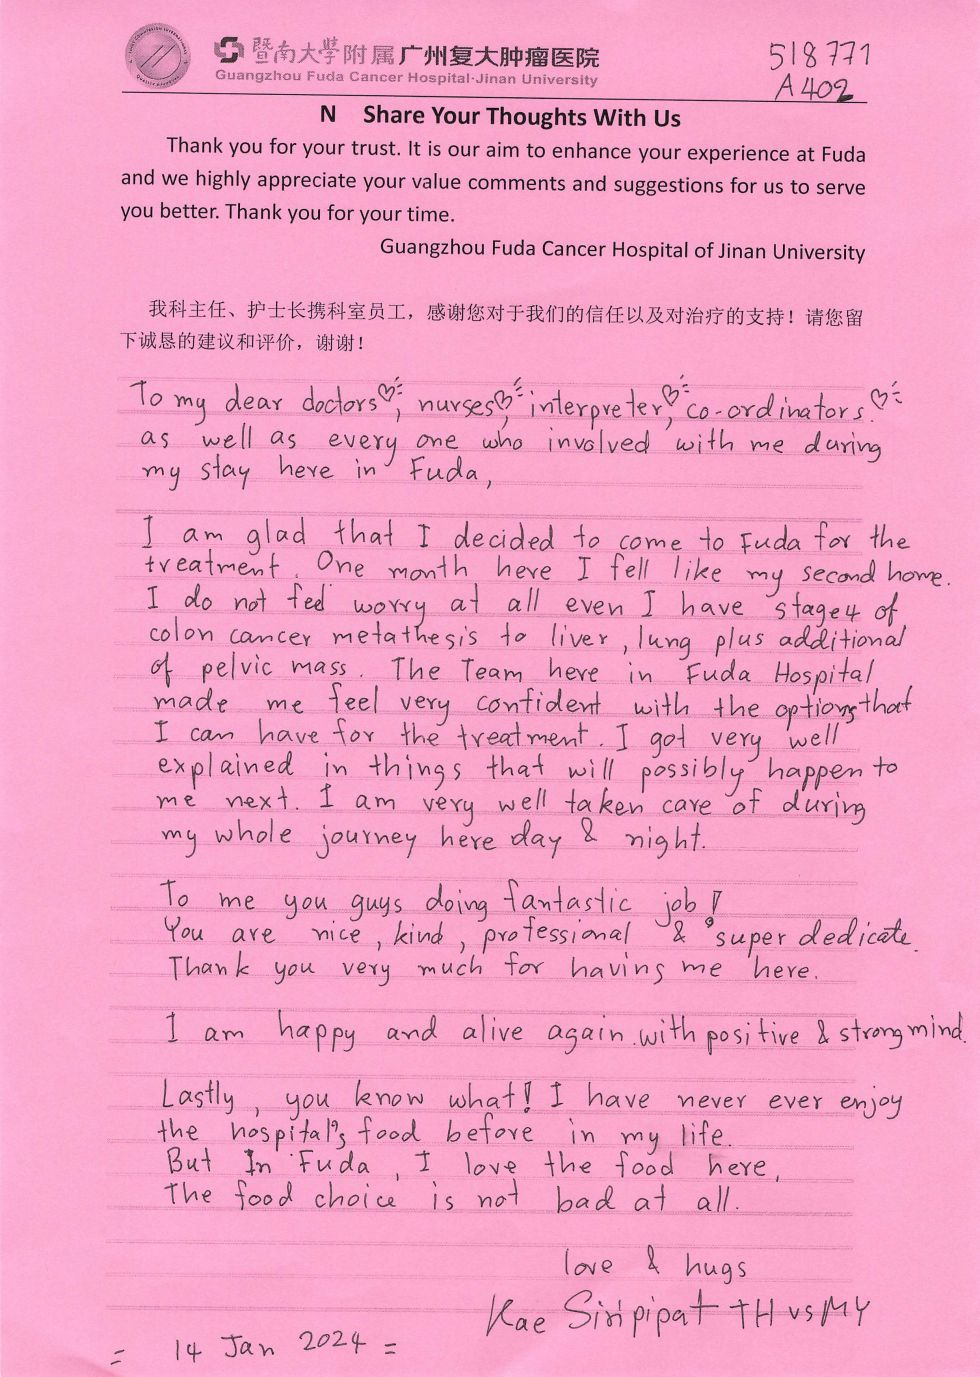 暨南大學附属广州复大肿瘤医院
Guangzhou Fuda Cancer Hospital·Jinan University
518771
A402
N Share Your Thoughts With Us
Thank you for your trust. It is our aim to enhance your experience at Fuda
and we highly appreciate your value comments and suggestions for us to serve
you better. Thank you for your time.
Guangzhou Fuda Cancer Hospital of Jinan University
我科主任、护士长携科室员工，感谢您对于我们的信任以及对治疗的支持！请您留
下诚恳的建议和评价，谢谢！
To my dear doctors♡, nurses♡, interpreter♡, co-ordinators♡.
as well as every one who involved with me during
my stay here in Fuda,
I am glad that I decided to come to Fuda for the
treatment. One month here I fell like my second home.
I do not feel worry at all even I have stage4 of
colon cancer metathesis to liver, lung plus additional
of pelvic mass. The Team here in Fuda Hospital
made me feel very confident with the options that
I can have for the treatment. I got very well
explained in things that will possibly happen to
me next. I am very well taken care of during
my whole journey here day & night.
To me you guys doing fantastic job!
You are nice, kind, professional & super dedicate.
Thank you very much for having me here.
I am happy and alive again with positive & strong mind.
Lastly, you know what! I have never ever enjoy
the hospital's food before in my life.
But In Fuda, I love the food here,
The food choice is not bad at all.
love & hugs
Kae Siripipat TH vs MY
= 14 Jan 2024 =